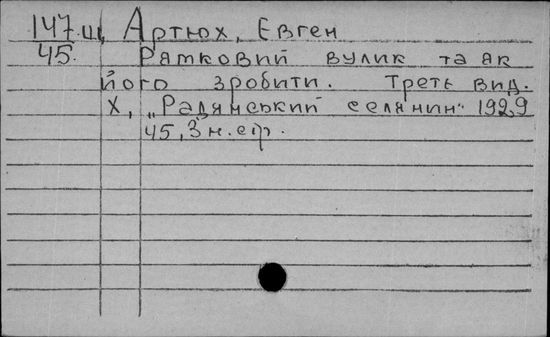 147.ш, Артюх, Євген
45. Рямковий вулик та як
його зробити. Третє вид.
Х, „Радянський селянин" 1929
45, 3 н. стр.